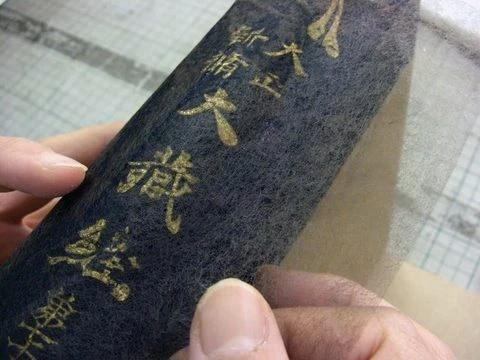 大正
新脩
大藏經
第